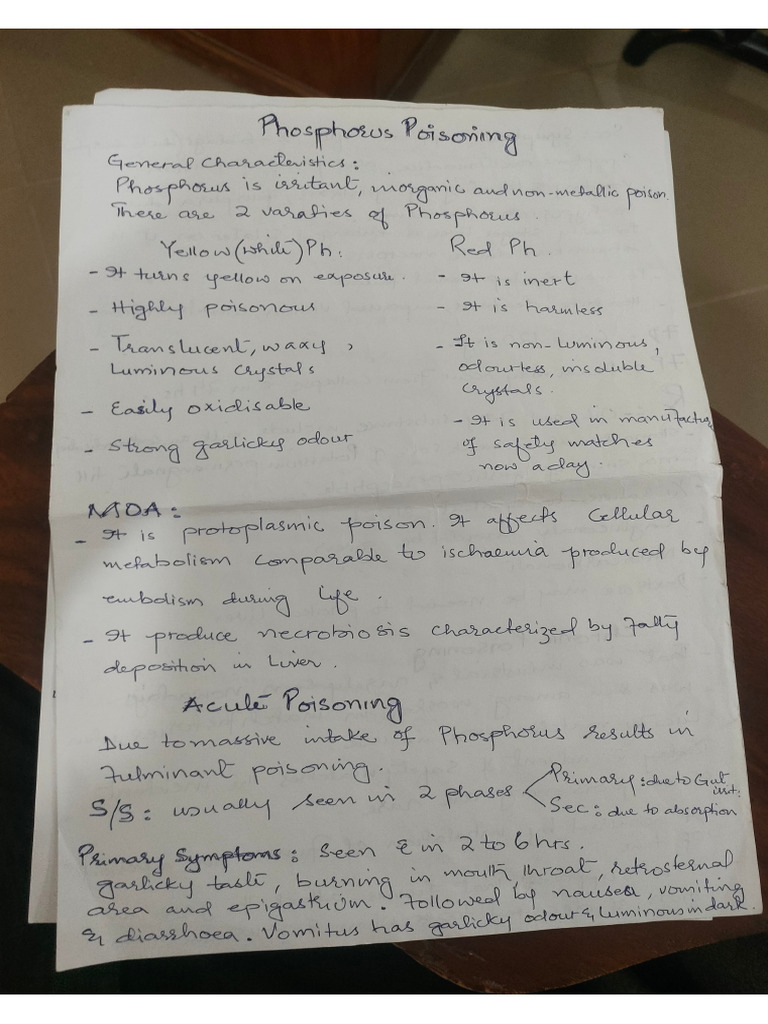 Phosphorus Poisoning
General Characteristics :
Phosphorus is irritant, inorganic and non-metallic poison.
There are 2 varaties of Phosphorus.
Yellow (white) Ph:
- It turns yellow on exposure.
- Highly poisonous
- Translucent, waxy,
Luminous crystals
- Easily oxidisable
- Strong garlicky odour
Red Ph.
- It is inert
- It is harmless
- It is non-luminous,
odourless, insoluble
crystals.
- It is used in manufactur
of safety matches
now aday.
MOA :
- It is protoplasmic poison. It affects Cellular
metabolism comparable to ischaemia produced by
embolism during life.
- It produce necrobiosis characterized by Fatty
deposition in Liver.
Acute Poisoning
Due to massive intake of Phosphorus results in
Fulminant poisoning.
S/S : usually seen in 2 phases
Primary : due to Gut
irrit:
Sec : due to absorption
Primary Symptoms : Seen in 2 to 6 hrs.
garlicky taste, burning in mouth, throat, retrosternal
area and epigastrium. Followed by nausea, vomiting
& diarrhoea. Vomitus has garlicky odour & Luminous in dark.